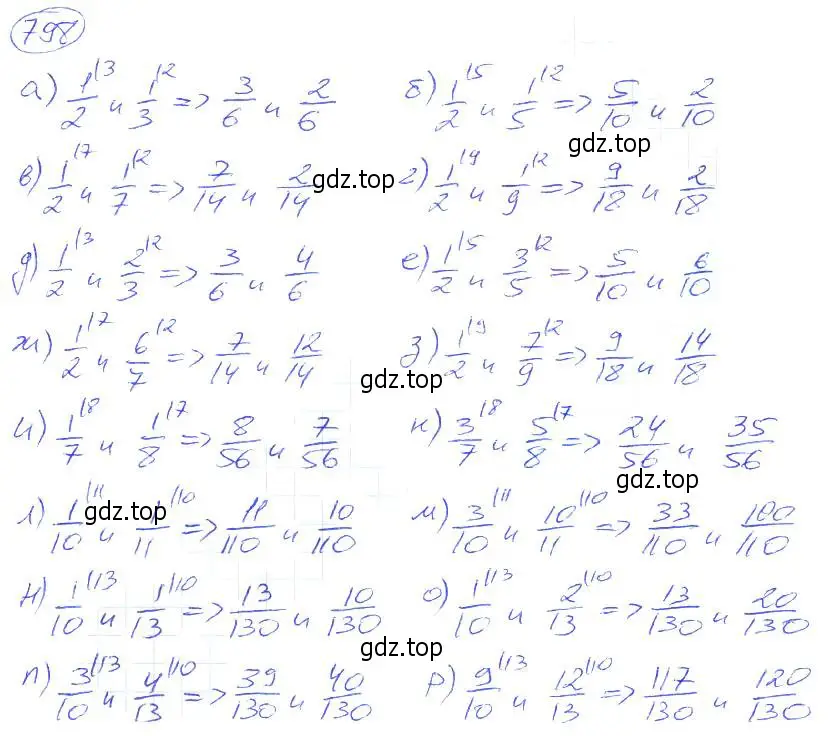 798
а) 1/2 \3 и 1/3 \2 => 3/6 и 2/6 б) 1/2 \5 и 1/5 \2 => 5/10 и 2/10
gdz.top
в) 1/2 \7 и 1/7 \2 => 7/14 и 2/14 gdz.top г) 1/2 \9 и 1/9 \2 => 9/18 и 2/18
д) 1/2 \3 и 2/3 \2 => 3/6 и 4/6 е) 1/2 \5 и 3/5 \2 => 5/10 и 6/10
ж) 1/2 \7 и 6/7 \2 => 7/14 и 12/14 з) 1/2 \9 и 7/9 \2 => 9/18 и 14/18
gdz.top
и) 1/7 \8 и 1/8 \7 => 8/56 и 7/56 к) 3/7 \8 и 5/8 \7 => 24/56 и 35/56
gdz.top
л) 1/10 \11 gdz.top и 1/11 \10 => 11/110 и 10/110 м) 3/10 \11 и 10/11 \10 => 33/110 и 100/110
н) 1/10 \13 и 1/13 \10 => 13/130 и 10/130 о) 1/10 \13 и 2/13 \10 => 13/130 и 20/130
gdz.top
п) 3/10 \13 и 4/13 \10 => 39/130 и 40/130 р) 9/10 \13 и 12/13 \10 => 117/130 и 120/130